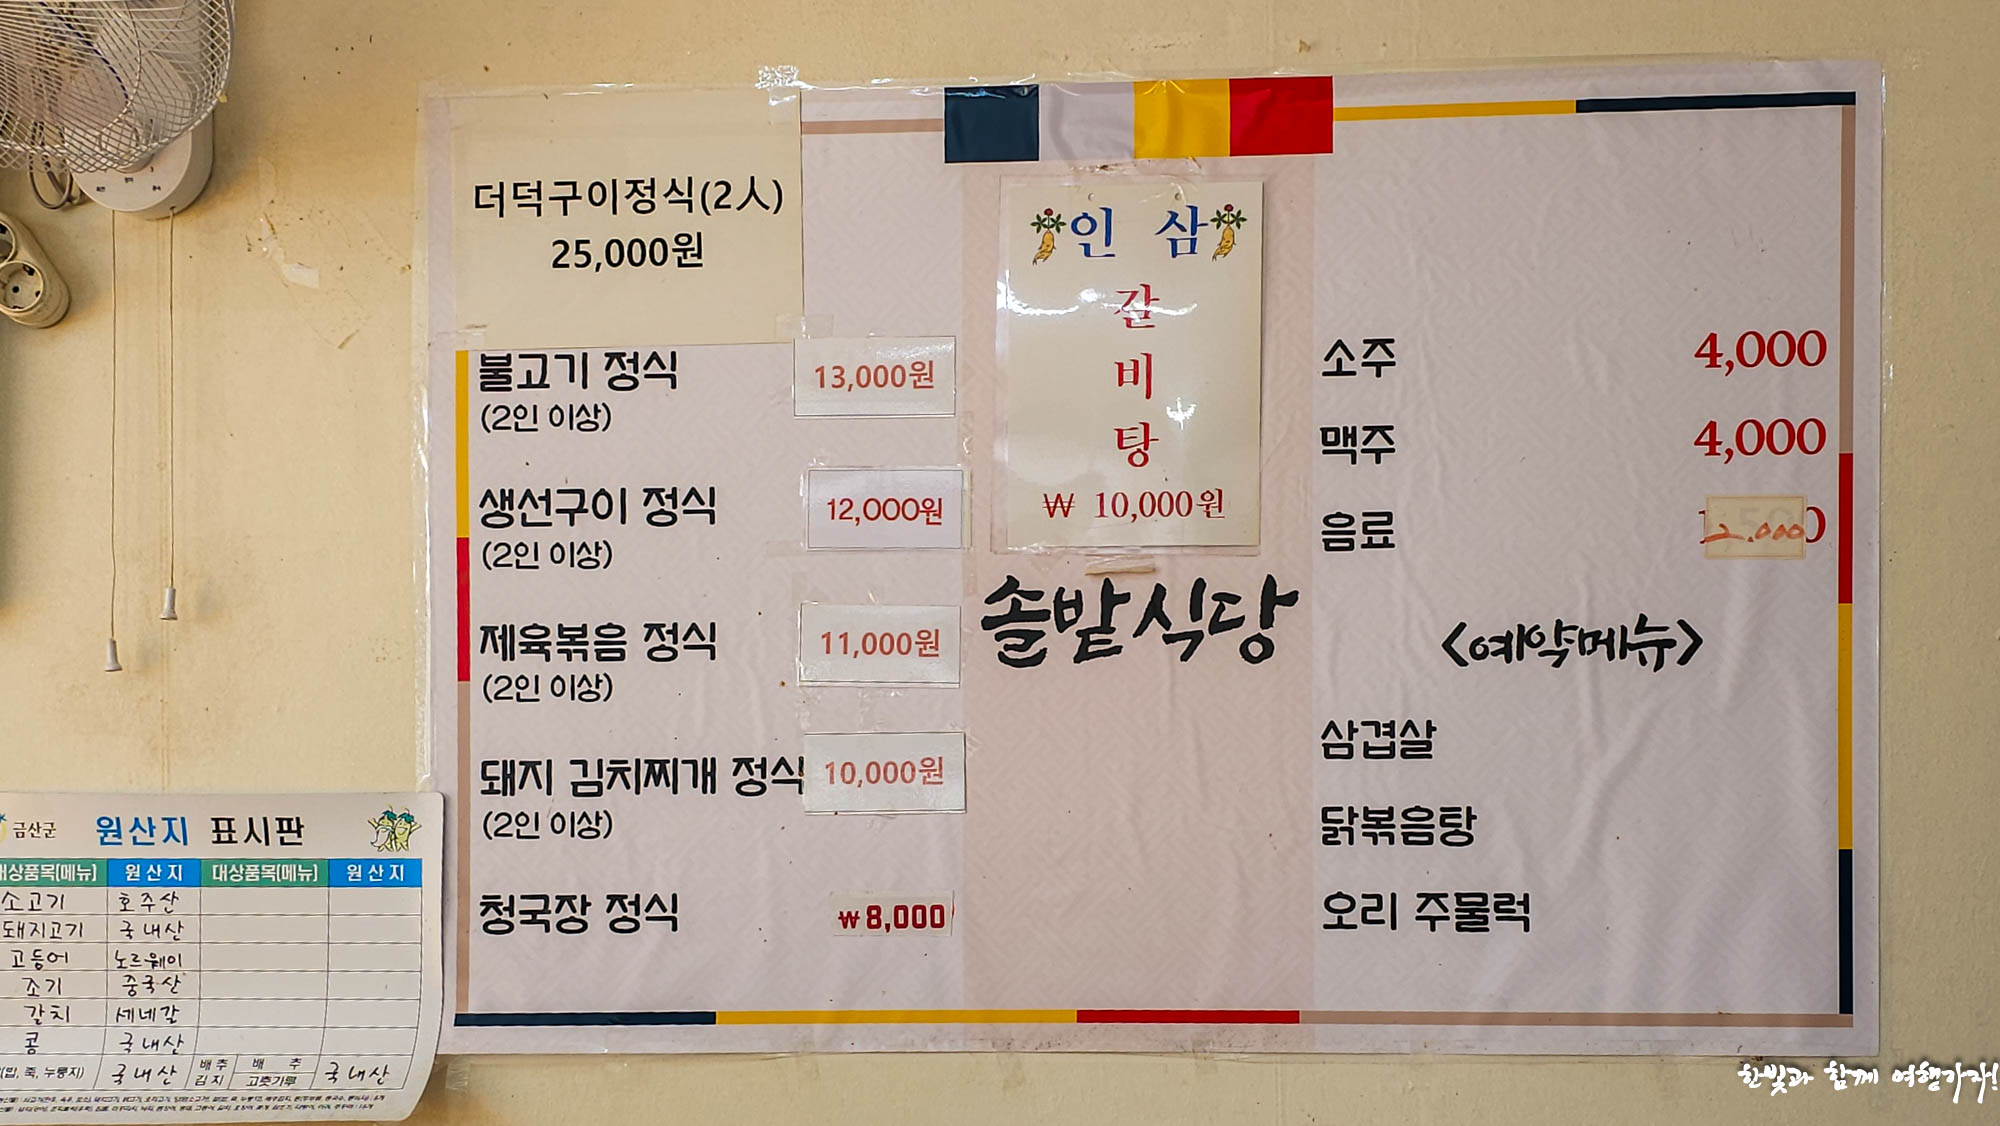 더덕구이정식(2人)
25,000원
불고기 정식 13,000원
(2인 이상)
생선구이 정식 12,000원
(2인 이상)
제육볶음 정식 11,000원
(2인 이상)
돼지 김치찌개 정식 10,000원
(2인 이상)
청국장 정식 ₩8,000
인 삼
갈
비
탕
₩ 10,000원
솔밭식당
소주 4,000
맥주 4,000
음료 2.000
<예약메뉴>
삼겹살
닭볶음탕
오리 주물럭
금산군 원산지 표시판
대상품목(메뉴) 원산지 대상품목(메뉴) 원산지
소고기 호주산
돼지고기 국내산
고등어 노르웨이
조기 중국산
갈치 세네갈
콩 국내산
(밥, 죽, 누룽지) 국내산 배추김치 배추 고춧가루 국내산
한빛과 함께 여행가자!